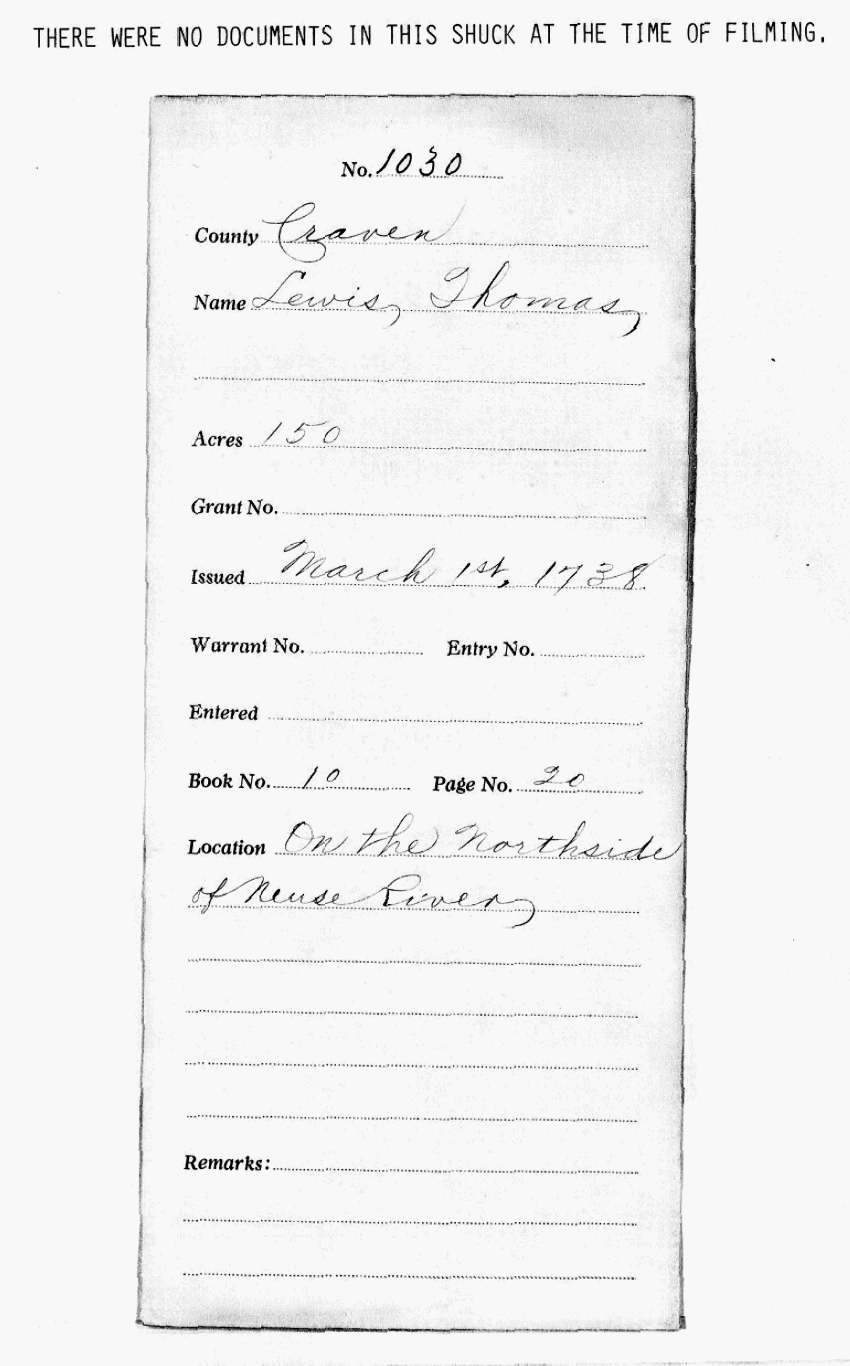 THERE WERE NO DOCUMENTS IN THIS SHUCK AT THE TIME OF FILMING.
No. 1030
County Craven
Name Lewis, Thomas,
Acres 150
Grant No.
Issued March 1st, 1738
Warrant No. Entry No.
Entered
Book No. 10 Page No. 20
Location On the Northside
of Neuse River,
Remarks: